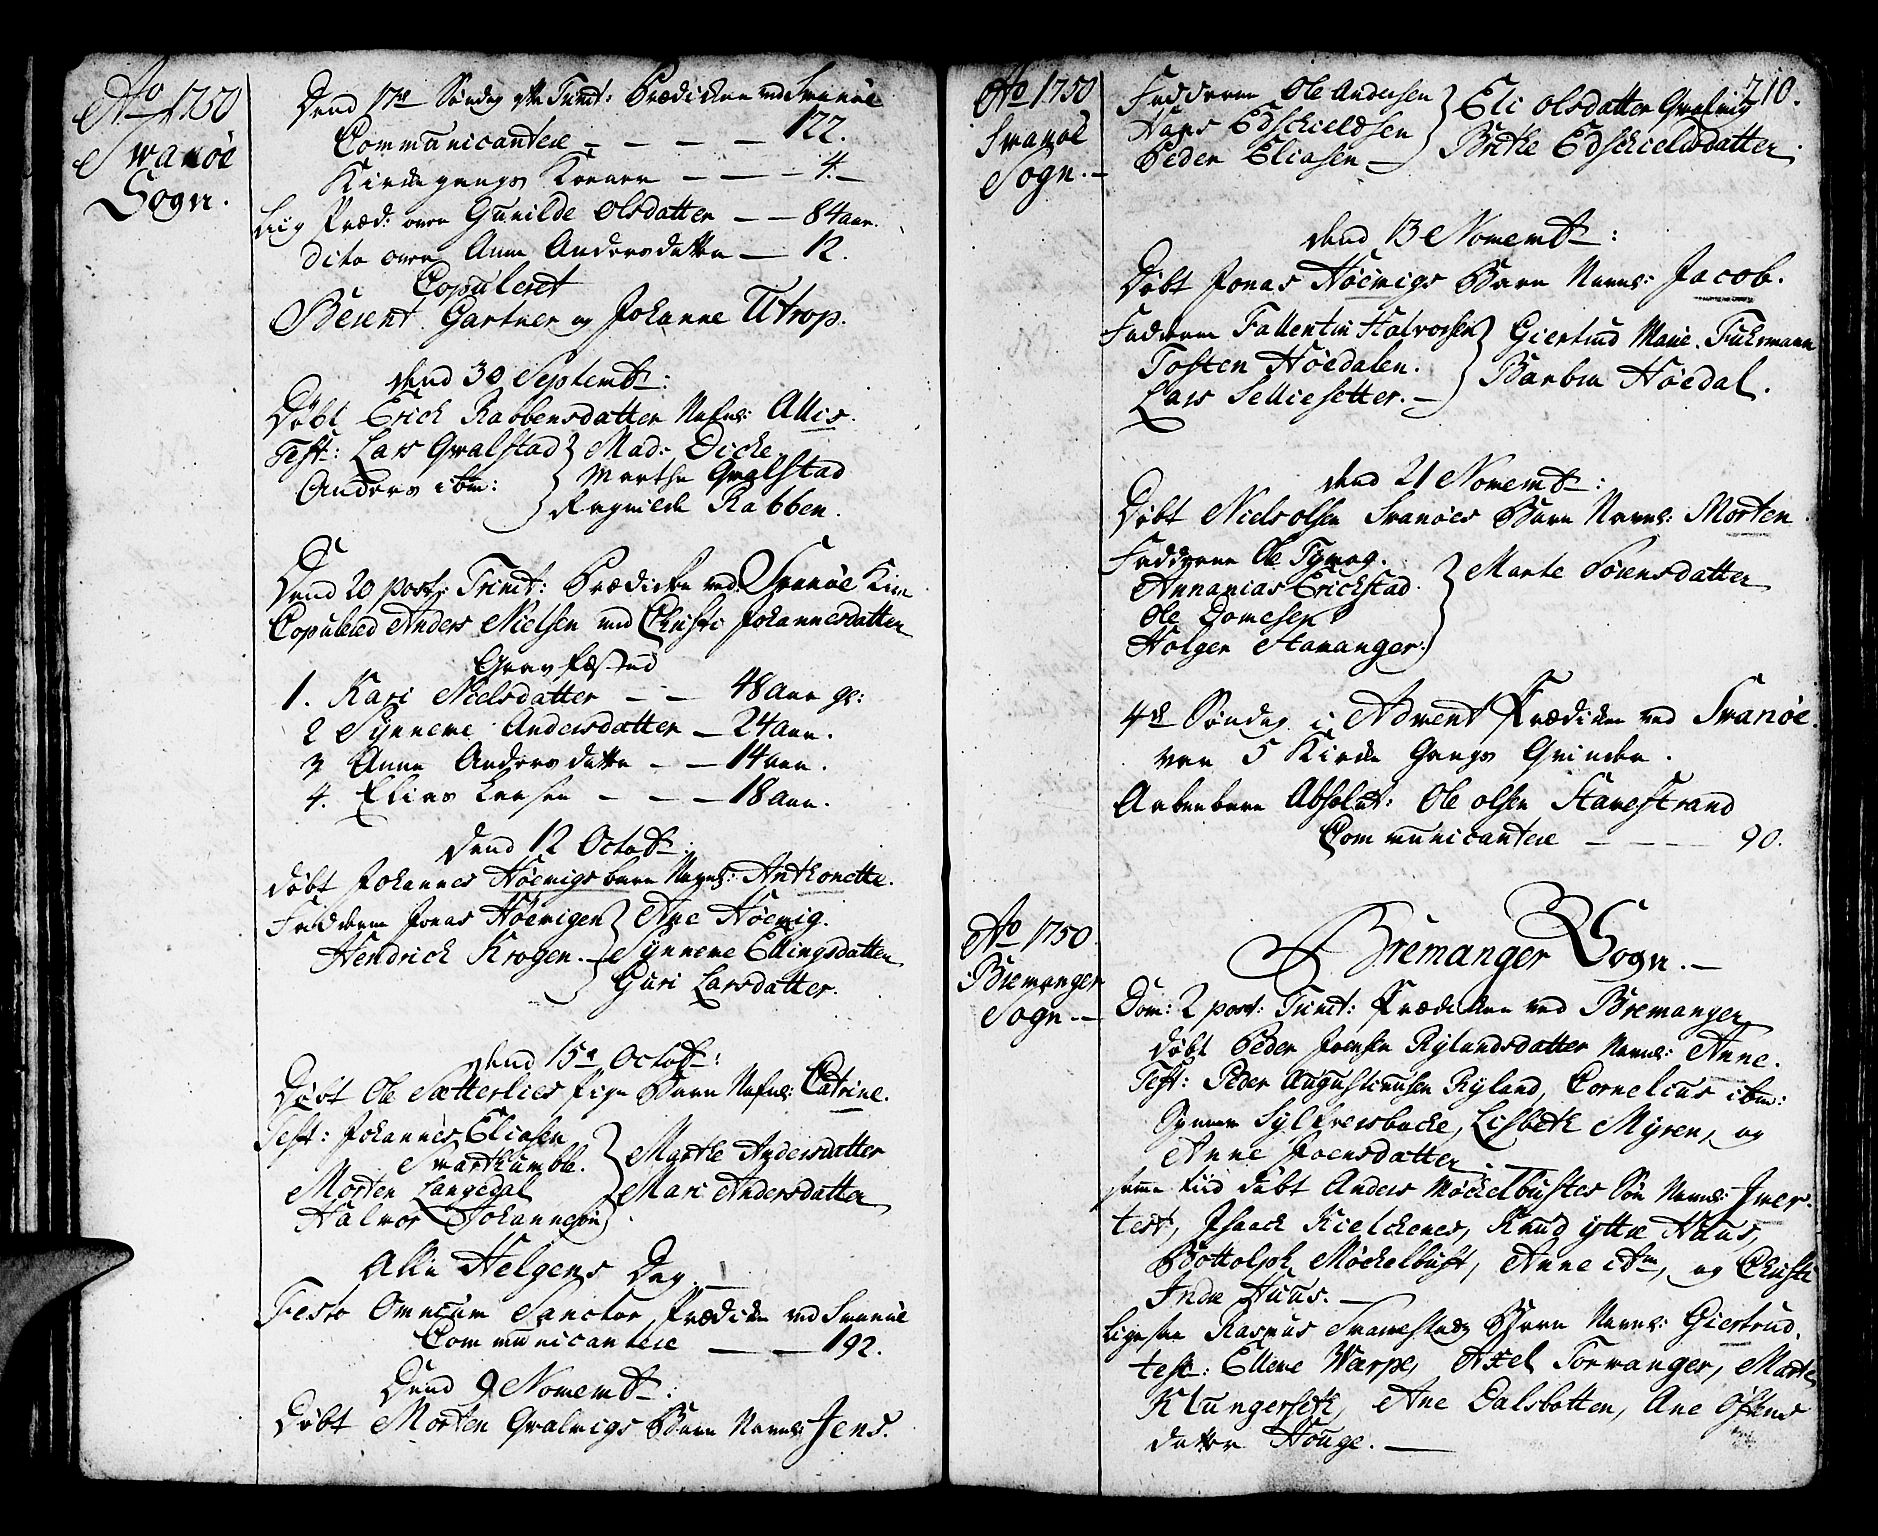 Ao 1750
Svanöe
Sogn.
Dend 13de Söndag efter Trinit: Prædicken ved Svanöe
Communicantere - - - - 122.
Kirkegangs Koener - - - 4.-
Liig Præd: over Gunilde Olsdatter - - 84 aar.
dito over Anne Andersdatter - 12.
Copuleret
Berent Gartner og Johanne Utrop.
dend 30 Septembr:
Döbt Erick Rabbensdatter Nafnl: Allis.
Test: Lars Qvalstad } Mad: Dicke
Anders ibm: } Marthe Qvalstad
Ragnilde Rabben.
Dend 20 post Trinit: Prædicke ved Svanöe Kirke
Copulered Anders Nielsen med Christi Johannesdatter
Gravfæsted
1. Kari Nielsdatter - - 48 aar gl:
2 Synneve Andersdatter - 24 aar.
3 Anne Andersdatter - - 14 aar.
4. Elias Larsen - - - 18 aar.
dend 12 Octobr:
döbt Johannes Höevigs barn Navnl: Anthonette.
Fadderne Jonas Höevigen } Ane Höevig.
Hendrick Krogen. - } Synneve Ellingsdatter
Guri Larsdatter.
dend 15de Octobr:
Döbt Ole Sætterlies Pige Barn Nafnl: Catrine.
Test: Johannes Eliasen
Svarthumble. } Marthe Andersdatter
Morten Langedal } Mari Andersdatter
Halvor Johannesön
Alle Helgens Dag. -
Festo Omnium Sanctor Prædicken ved Svanöe
Communicantere - - 192.
Dend 9 Novembr:
Döbt Morten Qvalvigs Barn Navnl: Jens.
Ao 1750
Svanöe
Sogn. -
210.
Fadderne Ole Andersen } Eli Olsdatter Qvalvig
Hans Edschieldsen } Brithe Edschieldsdatter.
Peder Eliasen -
dend 13 Novembr:
Döbt Jonas Höevigs Barn Navnl: Jacob.
Fadderne Fallentin Halvorsen } Giertrud Marie Fuhrmann
Tosten Höedalen. } Barbra Höedal.
Lars Selliesetter. -
dend 21 Novembr:
Döbt Niels Olsen Svanöes Barn Navnl: Morten.
Fadderne Ole
Annanias Erickstad. } Marte Joensdatter
Ole Domesen
Holger Stavanger.
4de Söndag i Advent Prædicken ved Svanöe.
var 5 Kirke Gangs Qvinder.
Aabenbare Absolut: Ole Olsen Stavestrand
Communicantere - - - - 90.
Ao 1750.
Bremanger
Sogn. -
Bremanger Sogn. -
Dom: 2 post: Trinit: Prædicken ved Bremanger
döbt Peder Joensen Rylandsdatter Navnl: Anne.
Test: Peder Augustinusen Ryland, Cornelius ibm:
Synneve Sylfversbacke, Lisbeth Myren, og
Anne Joensdatter. -
samme tiid döbt Anders Möckelbustes Sön Navnl: Iver.
test, Isaack Kielckenes, Knud ytre Huus,
Bottolph Möckelbust, Anne ibm, og Christi
Indre Huus. -
ligesaa Rasmus Barn Navnl: Giertrud.
test: Ellene Warpe, Axel Torvanger, Marte
Klungerseth, Ane Dalsbotten, Ane
datter Houge. -